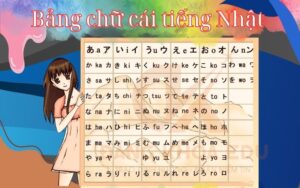 Bảng chữ cái tiếng Nhật
あa ア いi イ うu ウ えe エ おo オ んn ン
か ka カ き ki キ く ku ク け ke ケ こ ko コ わ wa ワ
さ sa サ し shi シ す su ス せ se セ そ so ソ を wo ヲ
た ta タ ち chi チ つ tsu ツ て te テ と to ト
な na ナ に ni ニ ぬ nu ヌ ね ne ネ の no ノ
は ha ハ ひ hi ヒ ふ fu フ へ he ヘ ほ ho ホ
ま ma マ み mi ミ む mu ム め me メ も mo モ
や ya ヤ ゆ yu ユ よ yo ヨ
ら ra ラ り ri リ る ru ル れ re レ ろ ro ロ